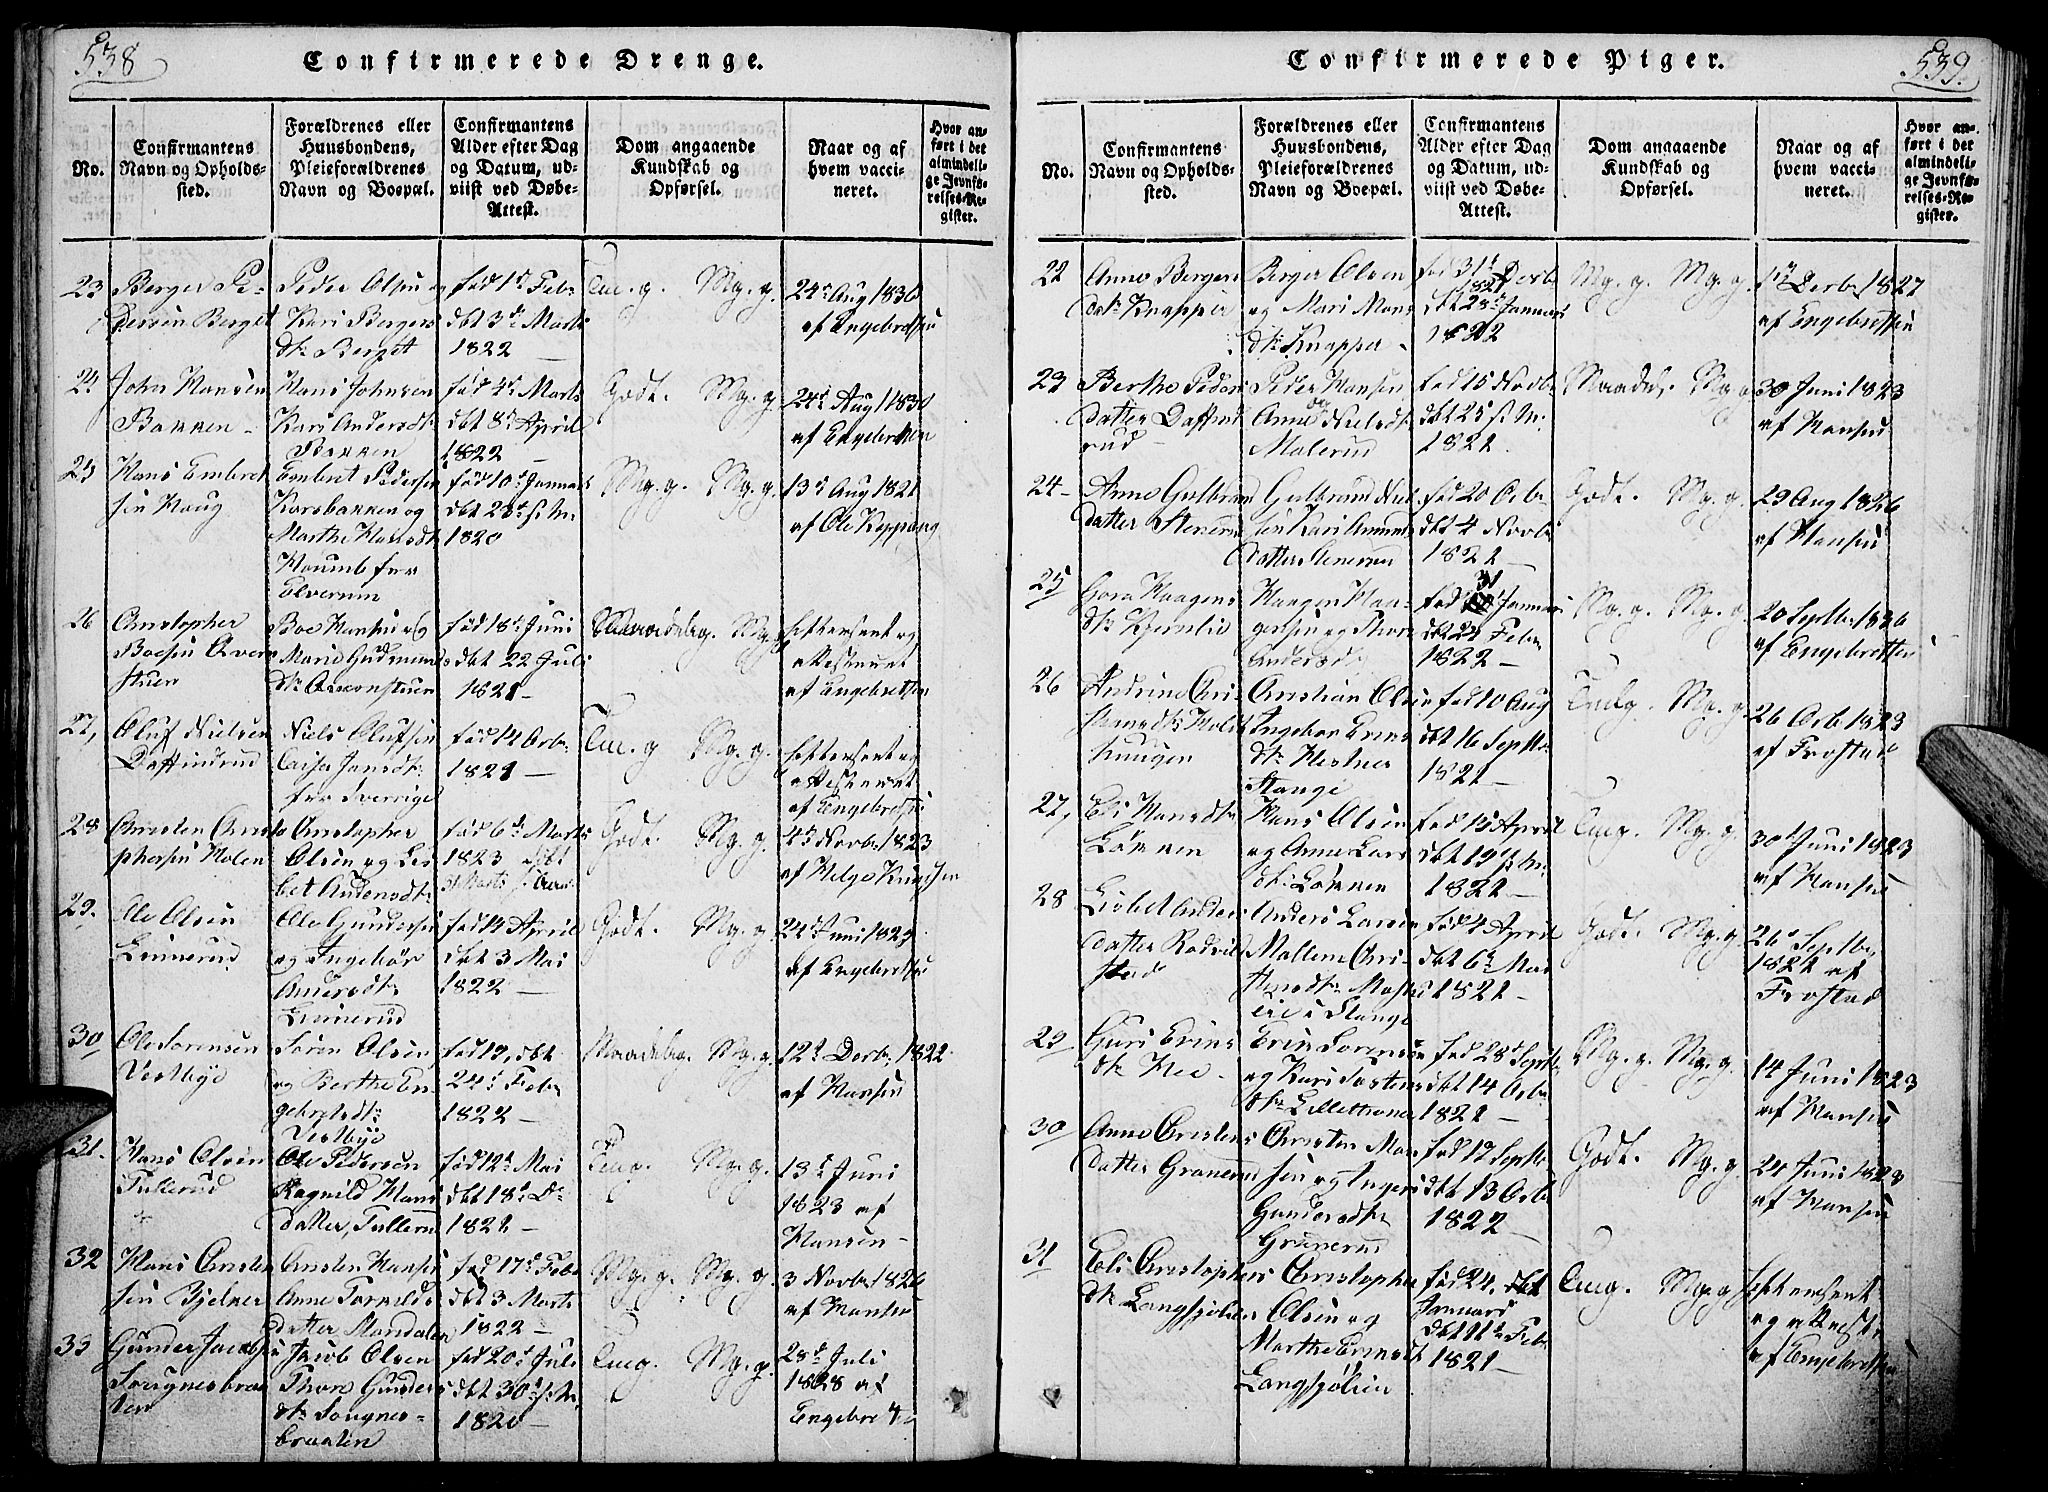 538
Confirmerede Drenge.
No.
Confirmantens
Navn og Opholds-
sted.
Forældrenes eller
Huusbondens,
Pleieforældrenes
Navn og Boepæl.
Confirmantens
Alder efter Dag
og Datum, ud-
viist ved Døbe-
Attest.
Dom angaaende
Kundskab og
Opførsel.
Naar og af
hvem vacci-
neret.
Hvor an-
ført i det
almindeli-
ge Jevnfø-
relses-Re-
gister.
23
Berger Pe-
dersen Berget
Peder Olsen og
Kari Bergers
dtr Berget
fød 1d Febr
dbt 3de Marts
1822
Tmg. g. Mg. g.
24d Aug 1830
af Engebretsen
24
John Hansen
Bakken
Hans Johnsen
Kari Andersdtr
Bakken
fød 4d Marts
dbt 8d April
1822
Godt. Mg. g.
24d Aug 1830
af Engebretsen
25
Hans Embret
sen Haug
Embret Pedersen
Karsbakken og
Marthe Hansdtr
fra
Elverum
fød 10d Januar
dbt 28d s. M.
1820
Mg. g. Mg. g.
13d Aug 1821
af Ole Koppang
26
Christopher
Boesen
Boe Hansen og
Marie Gudmunds
dtr
fød 18d Juni
dbt 22 Juli
1821
Maadelig. Mg. g.
af Engebretsen
27,
Oluf Nielsen
Daffindrud
Niels Olufsen
Caisa Jansdtr
fra Sverrige
fød 14 Octbr
1821
Tmg. g Mg. g.
af Engebretsen
28
Christen Christo
phersen Molen
Christopher
Olsen og Lis
bet Andersdtr
fød 6d Marts
1823 dbt
Godt. Mg. g.
4d Novbr 1823
af Helge Knudsen
29.
Ole Olsen
Linnerud
Ole Gundersen
og Ingebor
Andersdtr
Linnerud
fød 14 April
dbt 3 Mai
1822
Godt. Mg. g.
24d Juni 1823
af Engebretsen
30
Ole Sørensen
Vestbye
Søren Olsen
og Berthe En
gebretsdtr
Vestbye
fød 19, dbt
24d Febr
1822
Maadelig. Mg. g.
12d Decbr 1822
af Hansen
31.
Hans Olsen
Tullerud
Ole Pedersen
Ragnild Hans
datter, Tullerud
fød 12d Mai
dbt 18d Do
1821
Tmg. Mg. g.
13d Juni
1823 af
Hansen
32
Hans Christen
sen Bjelner
Christen Hansen
Anne Torkilds
datter Mandalen
fød 17d Febr
dbt 3 Marts
1822
Mg. g. Mg. g.
3 Novbr 1826
af Hansen
33
Gunder Jacobsen
Sougnesbraa
ten
Jacob Olsen
Thore Gunders
dtr Sougnes-
braaten
fød 20d Juli
dbt 30d s. M.
1820
Tmg. Mg. g.
28d Juli
1828 af
Engebre
539.
Confirmerede Piger.
No.
Confirmantens
Navn og Opholds-
sted.
Forældrenes eller
Huusbondens,
Pleieforældrenes
Navn og Boepæl.
Confirmantens
Alder efter Dag
og Datum, ud-
viist ved Døbe-
Attest.
Dom angaaende
Kundskab og
Opførsel.
Naar og af
hvem vacci-
neret.
Hvor an-
ført i det
almindeli-
ge Jevnfø-
relses-Re-
gister.
22
Anne Bergers
dtr Knapper
Berger Olsen
og Mari Mons
dtr Knapper
fød 31d Decbr
1821
dbt 28d Januar
1822
Mg. g. Mg. g.
Decbr 1827
af Engebretsen
23
Berthe Peders
datter Daffind
rud
Peder Hansen
og
Anne Nielsdtr
Malerud
fød 15 Novbr
dbt 25 s. M.
1821
Maadel. Mg. g.
30 Juni 1823
af Hansen
24
Anne Gulbrands
datter Stenerud
Gulbrand Niel
sen Kari Amunds
datter Stenerud
fød 20 Octbr
dbt 4 Novbr
1821
Godt. Mg. g.
29 Aug 1826
af Hansen
25
Gora Haagens
dtr Kjernlie
Haagen Haa-
gensen og Thore
Andersdtr
fød 31 Januar
dbt 24 Febr
1822
Mg. g. Mg. g.
20 Septbr 1826
af Engebretsen
26
Andrine Chri
stiansdtr Holst
haugen
Christian Olsen
Ingebor Erics
dtr
Stange
fød 10 Aug
dbt 16 Septbr
1821
Tmg. Mg. g.
26 Octbr 1823
af Frostad
27,
Eli Hansdtr
Løkken
Hans Olsen
og Anne Lars
dtr Løkken
fød 15 April
dbt 19 s. M.
1821
Tmg. Mg. g.
30d Juni 1823
af Hansen
28
Lisbet Anders
datter
Anders Larsen
Mallene Chri-
stensdtr
i Stange
fød 4 April
dbt 6d Mai
1821
Godt. Mg. g.
26d Septbr
1822 af
Frostad
29
Guri Erics
dtr
Eric Sørensen
og Kari Tostens
dtr Lillettroner
fød 28d Septbr
dbt 14 Octbr
1821
Mg. g. Mg. g.
14 Juni 1823
af Hansen
30
Anne Christens
datter Granerud
Christen Han
sen og Inger
Gundersdtr
Granerud
fød 17 Septbr
dbt 13 Octbr
1822
Godt. Mg. g.
24 Juni 1823
af Hansen
31
Eli Christophers
dtr Langsjølien
Christopher
Olsen og
Marthe Ericsdtr
Langsjølien
fød 24, dbt
Januari
dbt 11te Febr
1821
Tmg. Mg. g.
af Engebretsen